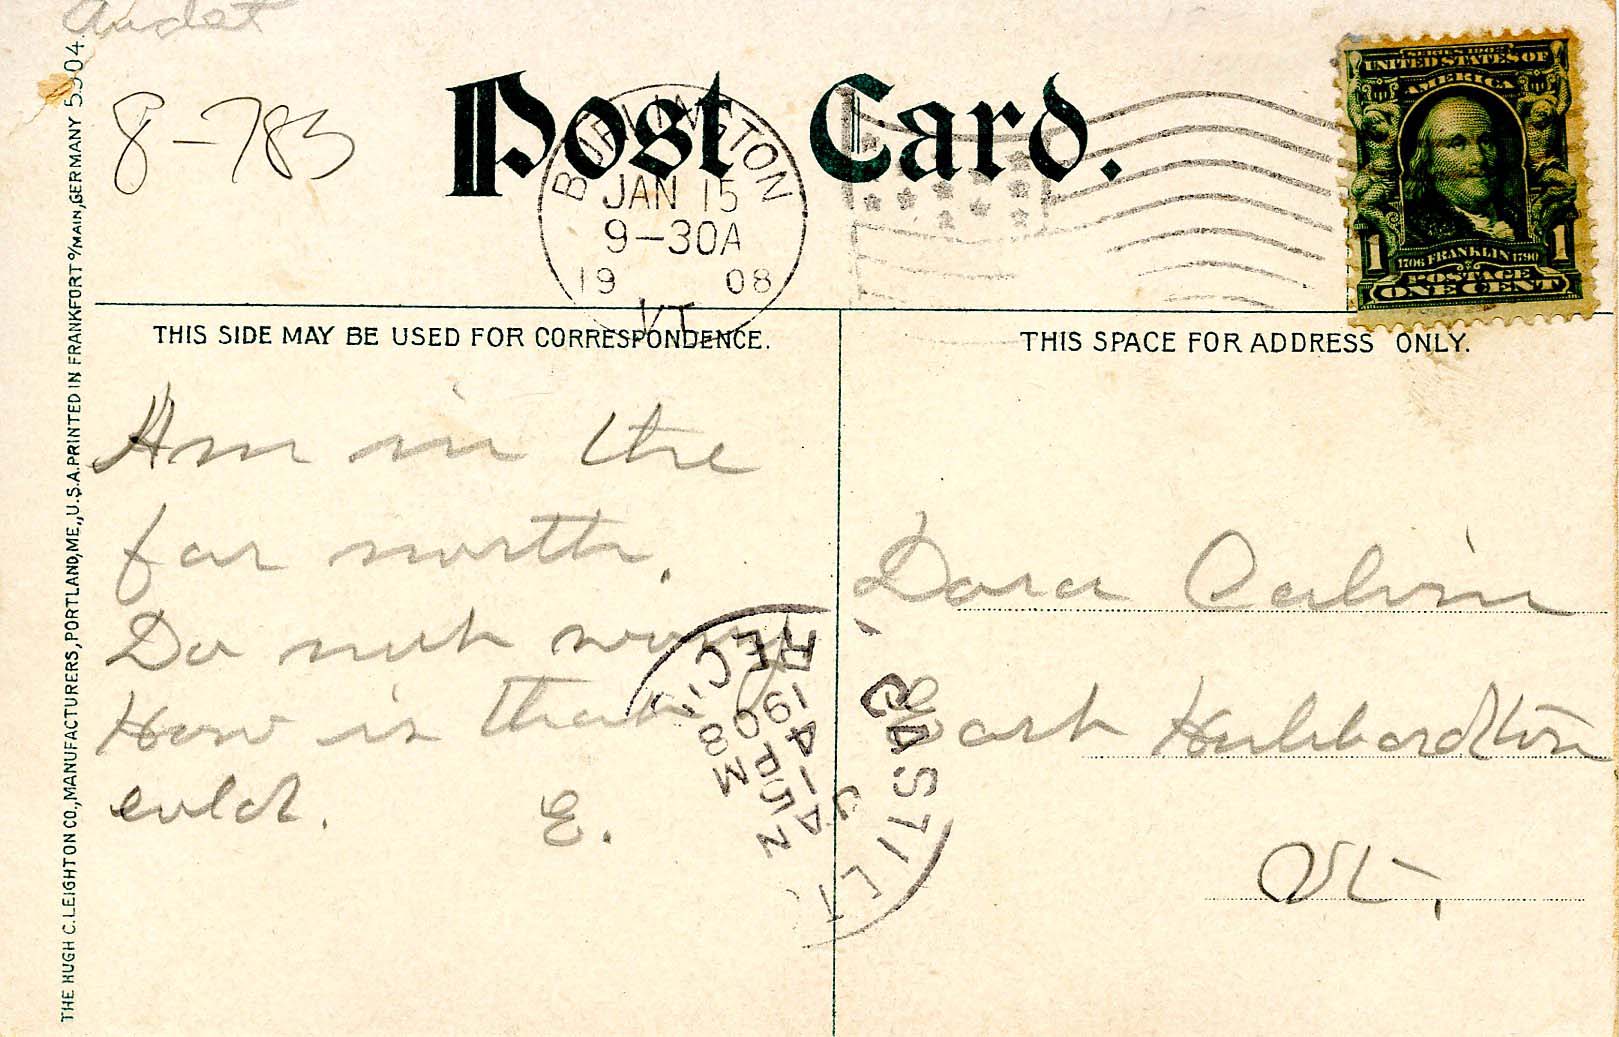 8-783
Post Card.
BURLINGTON
JAN 15
9-30A
19 08
VT.
SERIES 1902
UNITED STATES OF
AMERICA
1 1
1706 FRANKLIN 1790
POSTAGE
ONE CENT
THE HUGH C. LEIGHTON CO., MANUFACTURERS, PORTLAND, ME., U.S.A. PRINTED IN FRANKFORT o/MAIN, GERMANY
THIS SIDE MAY BE USED FOR CORRESPONDENCE.
THIS SPACE FOR ADDRESS ONLY.
Am in the
far north.
Do not worry
How is that
cold. E.
Dora Calvin
East Hubbardton
Vt.
REC'D.
1908
4 PM
JAN 15